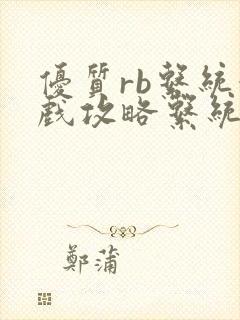 優質rb繫統
戲攻略繫統
鄭蒲